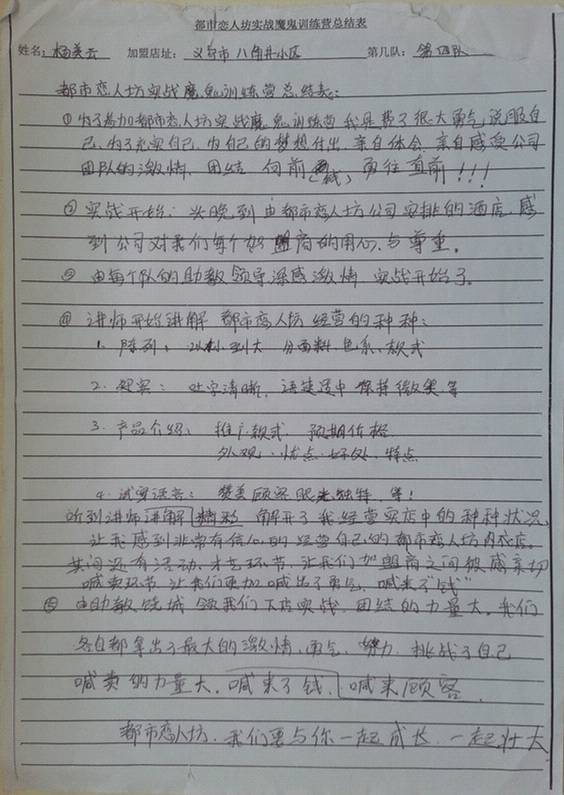 都市恋人坊实战魔鬼训练营总结表
姓名：杨美云 加盟店址：义乌市八角井小区 第几队：第四队
都市恋人坊实战魔鬼训练营总结表：
①为了参加都市恋人坊实战魔鬼训练营我是费了很大勇气说服自
己，为了充实自己，为自己的梦想付出，亲自体会，亲自感受公司
团队的激情、团结、向前（喊）勇往直前！！！
②实战开始：头晚到由都市恋人坊公司安排的酒店，感
到公司对我们每个加盟商的用心，与尊重。
③由每个队的助教领导深感激情 实战开始了。
④讲师开始讲解 都市恋人坊经营的种种：
1. 陈列：从小到大 分面料、色系、款式
2. 迎宾：吐字清晰，语速适中 保持微笑等
3. 产品介绍：推广款式 预期价格
外观、优点、好处、特点
4. 试穿话言：赞美顾客眼光独特，等！
听到讲师讲解精彩 解开了我经营实店中的种种状况
让我感到非常有信心的经营自己的都市恋人坊内衣店。
其间还有活动、才艺环节，让我们加盟商之间极感亲切
喊卖环节 让我们更加喊出了勇气，喊来了“钱”
⑤由助教 领我们下店实战，团结的力量大，我们
各自都拿出了最大的激情、勇气、努力，挑战了自己
喊卖的力量大，喊来了钱，喊来顾客。
都市恋人坊，我们要与你一起成长，一起壮大